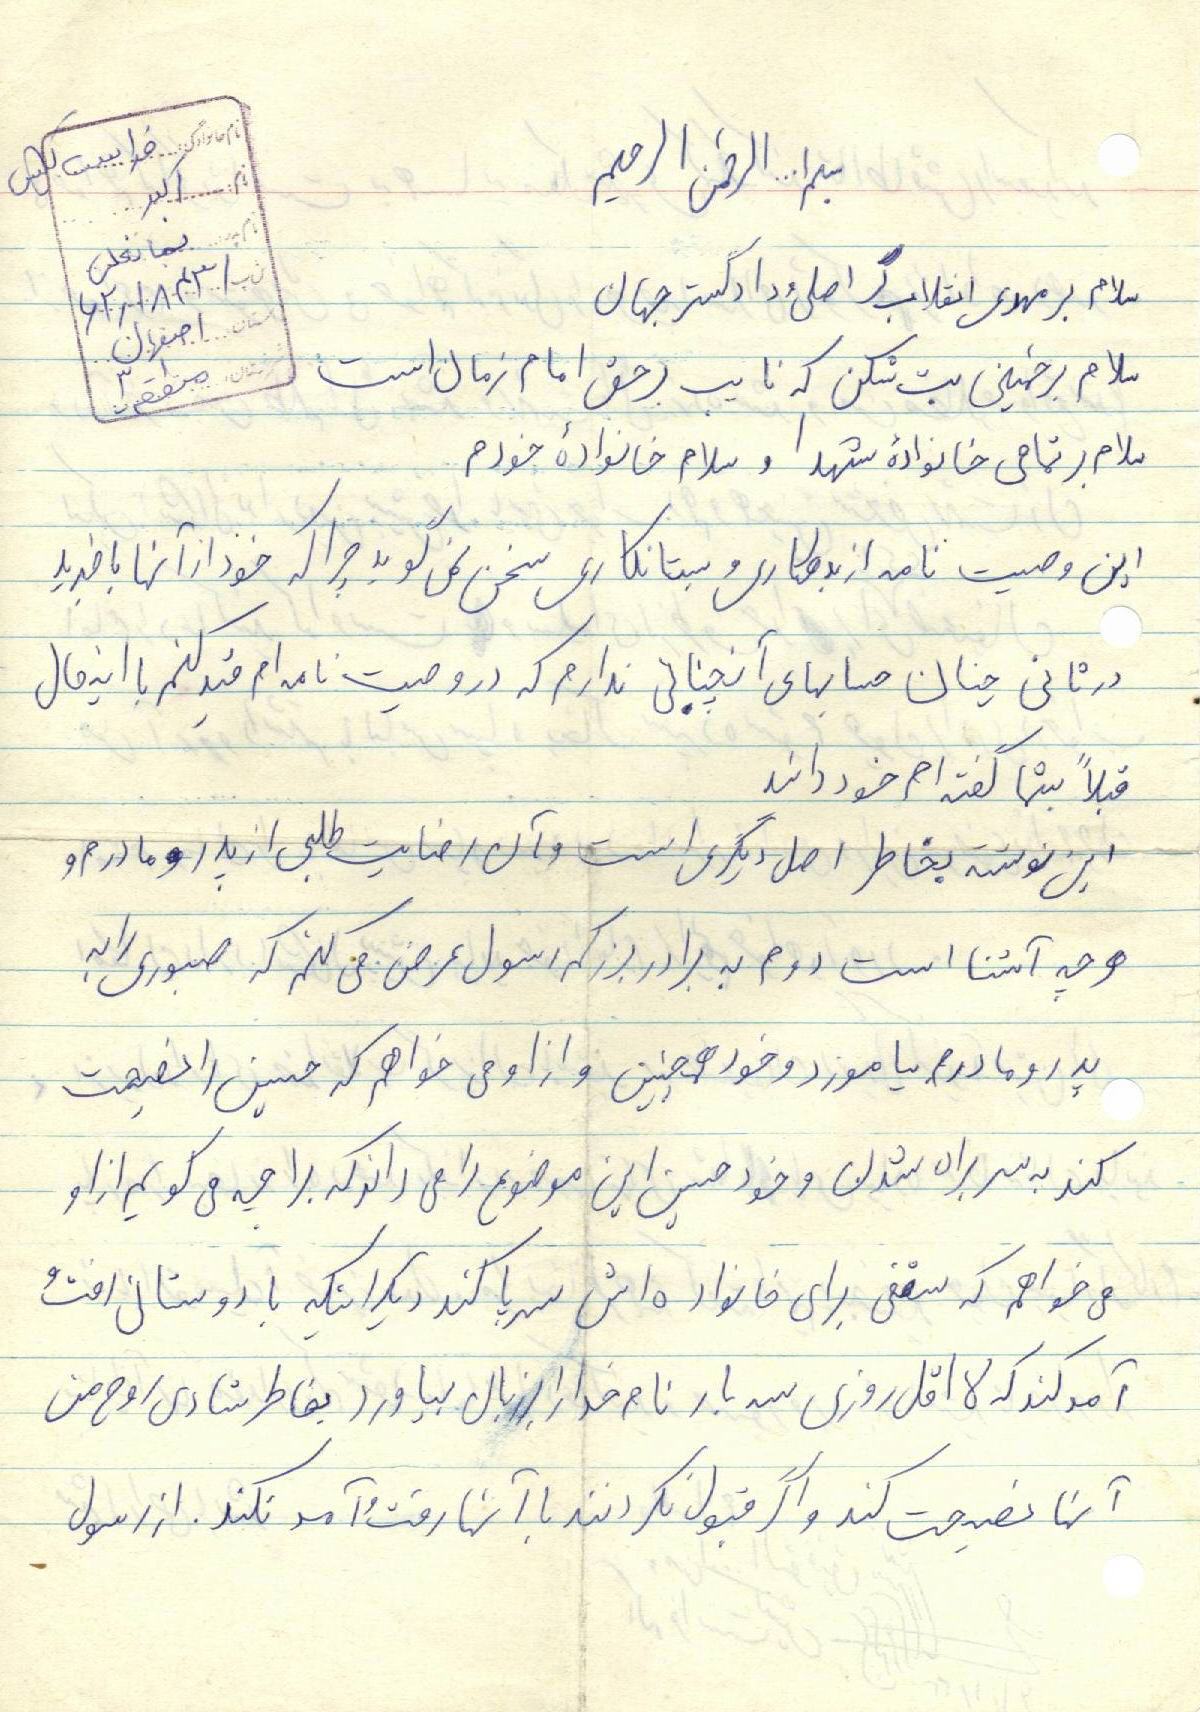 بسم ا... الرحمن الرحیم
نام خانوادگی: خواست
نام: اکبر
نام پدر:
ش پ
استان: اصفهان
شهرستان: منطقه ۳
سلام بر مهدی انقلاب گر اصلی و دادگستر جهان
سلام بر خمینی بت شکن که نایب بر حق امام زمان است
سلام بر تمامی خانوادهٔ شهدا و سلام خانوادهٔ خودم
این وصیت نامه از بدهکاری و بستانکاری سخن نمی گوید چرا که خود از آنها باخبرید
در ثانی چنان حسابهای آنچنانی ندارم که در وصیت نامه ام قید کنم با این حال
قبلاً بشما گفته ام خود دانند
این نوشته بخاطر اصل دیگری است و آن رضایت طلبی از پدر و مادرم و
هر چه آشنا است دوم به برادر بزرگم رسول عرض می کنم که صبوری را به
پدر و مادرم بیاموزد و خود همچنین و از او می خواهم که حسین را نصیحت
کند به سر براه شدن و خود حسین این موضوع را می داند که برا چه می گویم از او
می خواهم که سقفی برای خانواده اش سرپا کند دیگر اینکه با دوستانی رفت و
آمد کند که لااقل روزی سه بار نام خدا را بر زبان بیاورد بخاطر شادی روح من
آنها نصیحت کند و اگر قبول نکردنند با آنها رفت و آمد نکند. از رسول